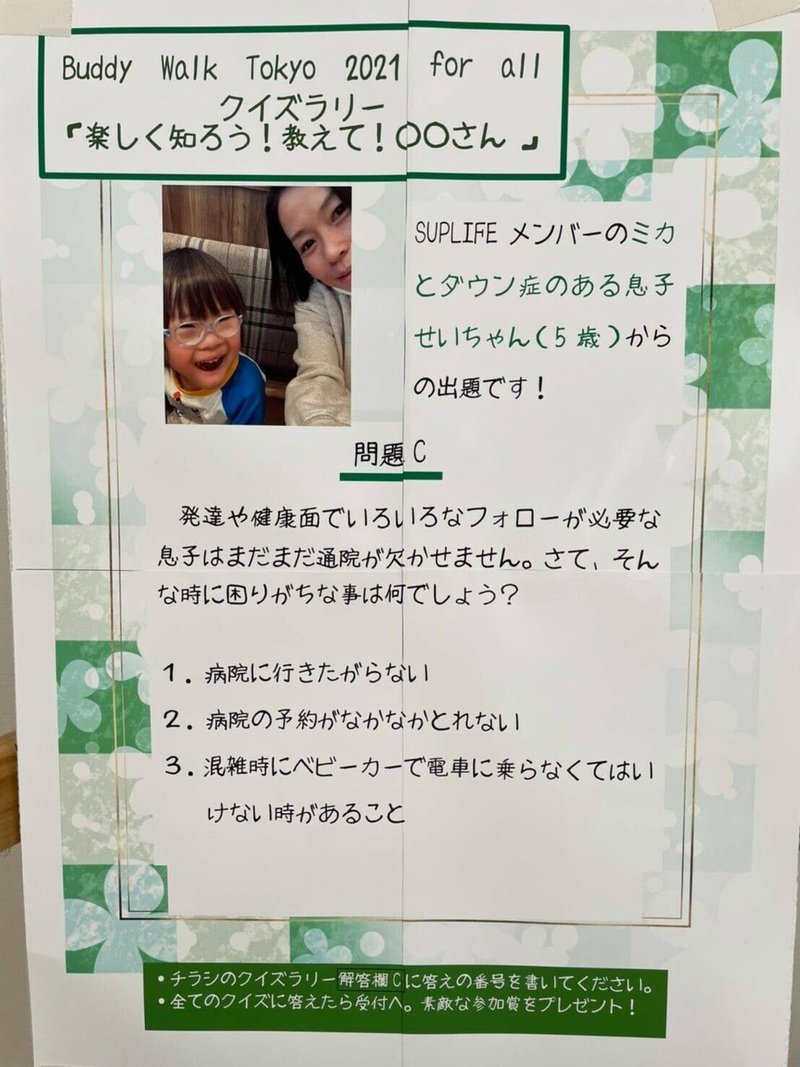 Buddy Walk Tokyo 2021 for all
クイズラリー
「楽しく知ろう！教えて！〇〇さん 」
SUPLIFE メンバーのミカ
とダウン症のある息子
せいちゃん(5歳)から
の出題です！
問題C
発達や健康面でいろいろなフォローが必要な
息子はまだまだ通院が欠かせません。さて、そん
な時に困りがちな事は何でしょう？
1. 病院に行きたがらない
2. 病院の予約がなかなかとれない
3. 混雑時にベビーカーで電車に乗らなくてはい
けない時があること
・チラシのクイズラリー解答欄Cに答えの番号を書いてください。
・全てのクイズに答えたら受付へ。素敵な参加賞をプレゼント！